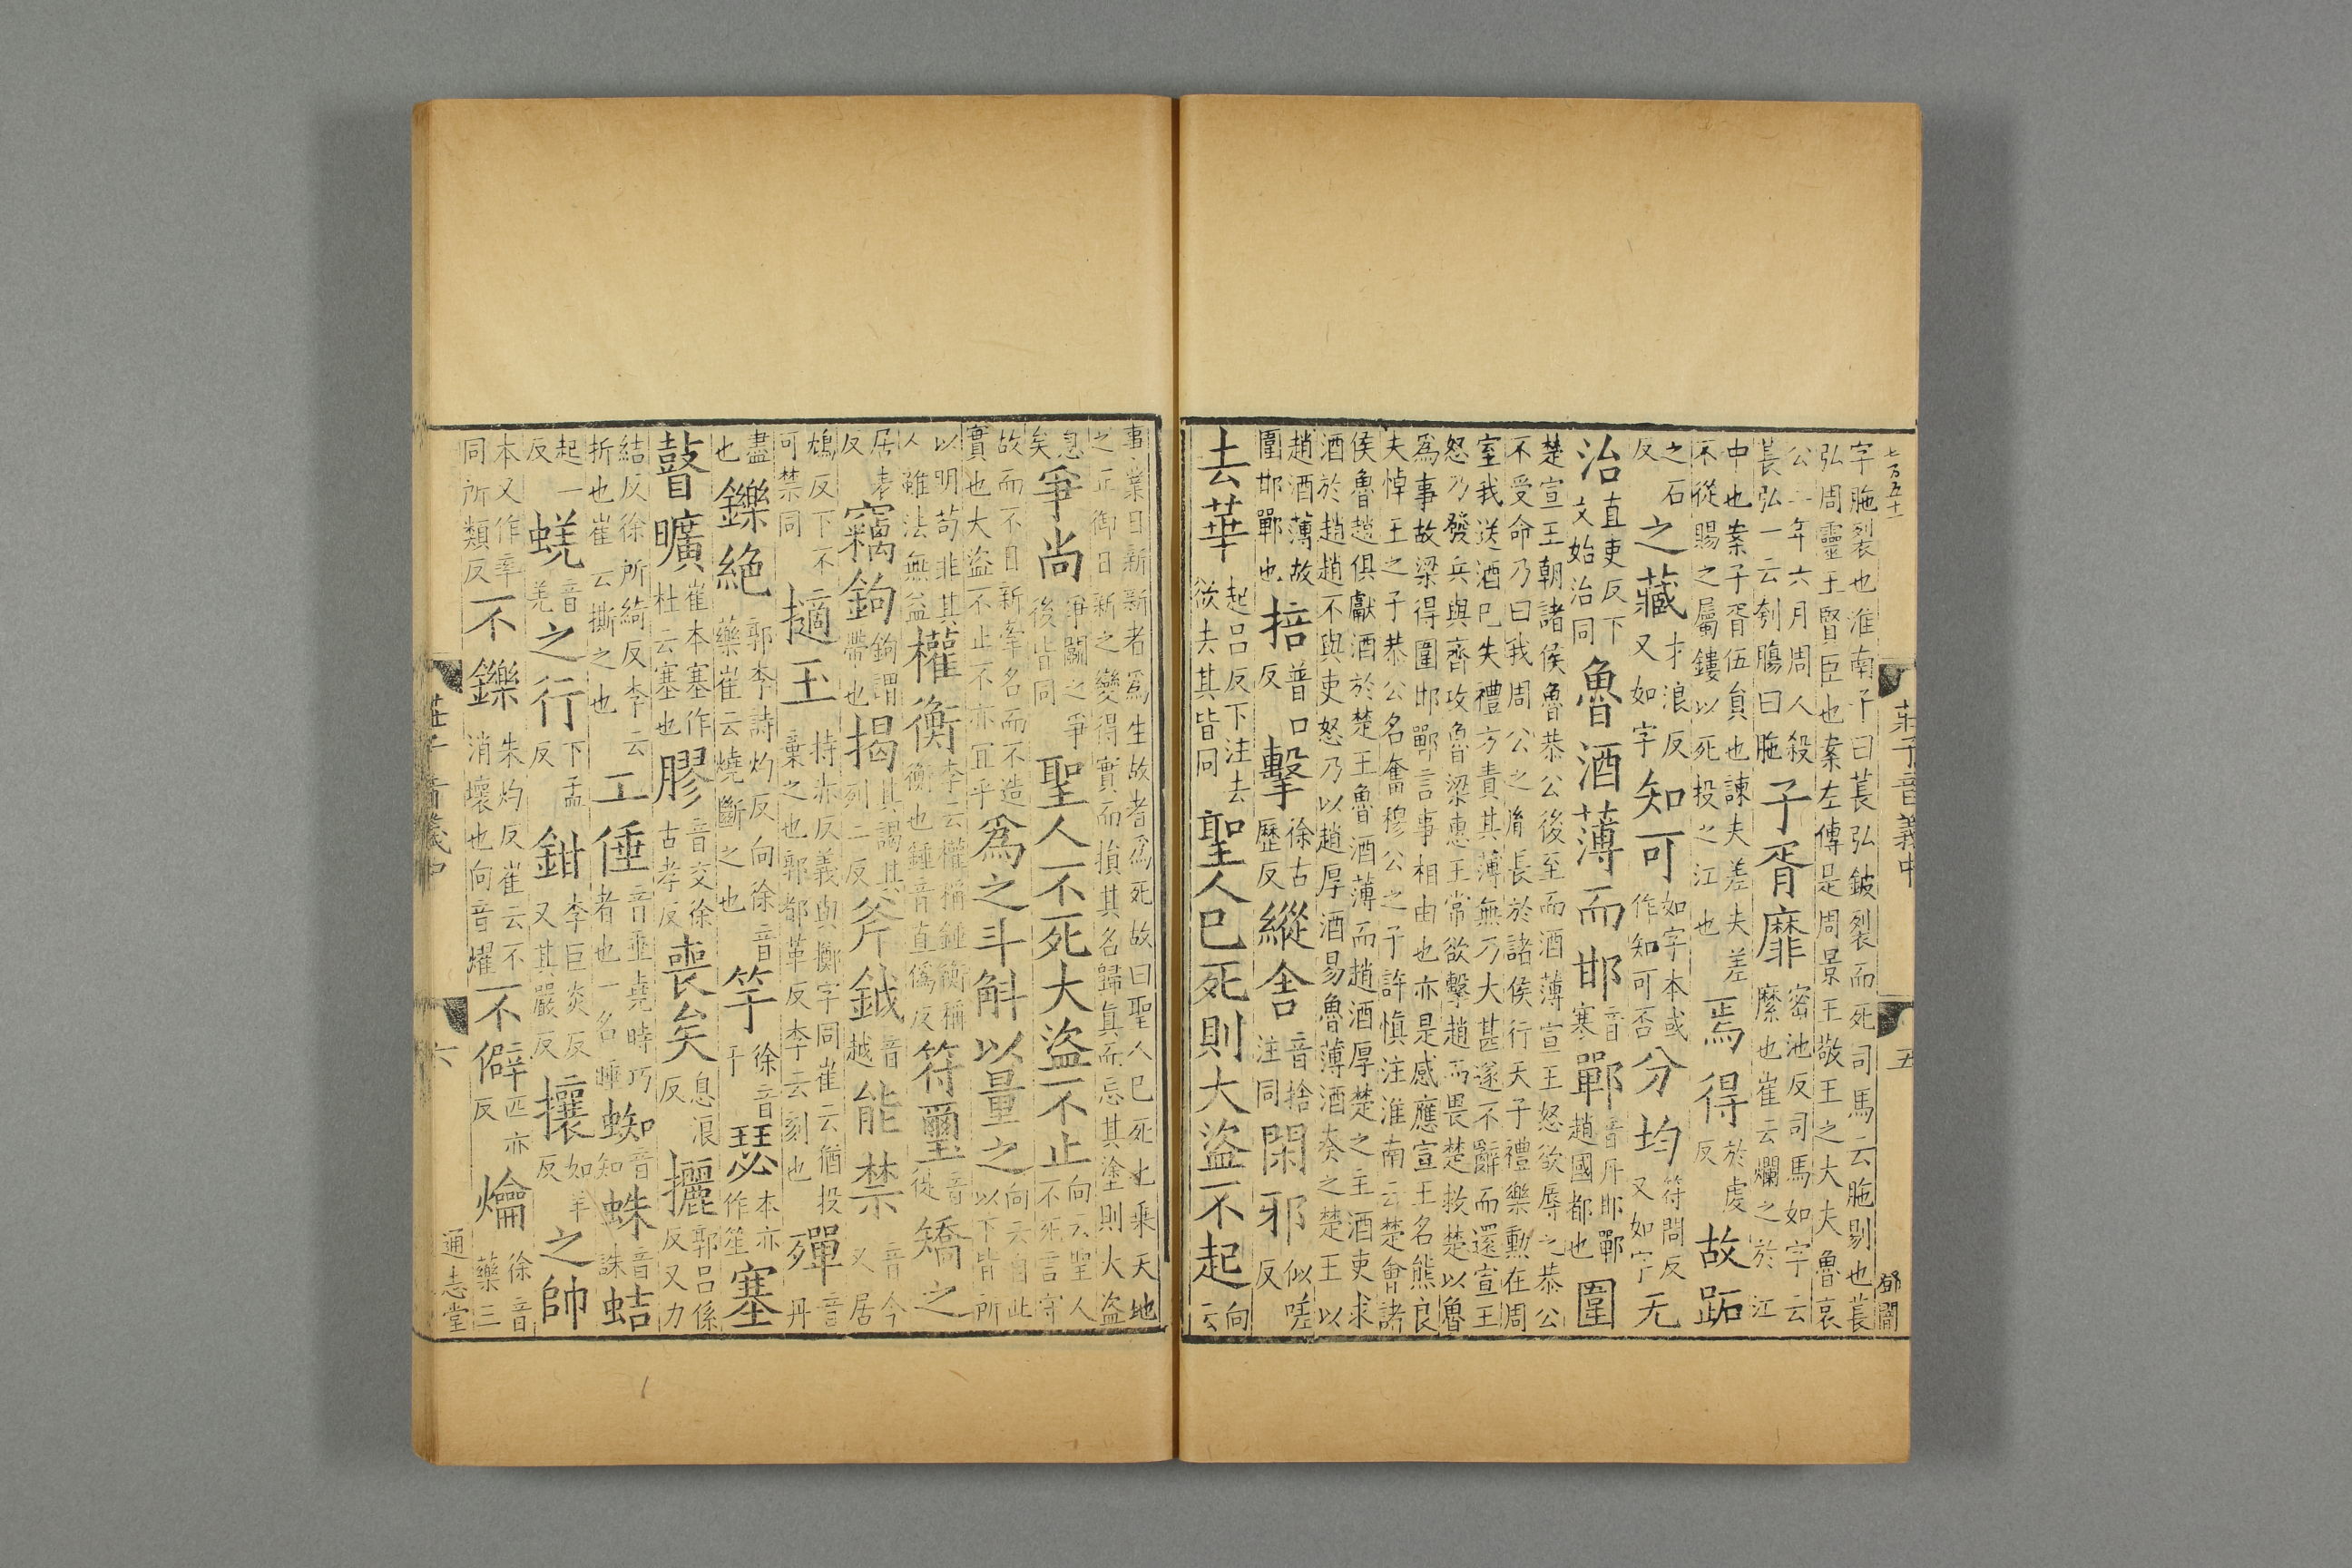 七百五十
莊子音義中 五 鄧闓
字胣裂也淮南子曰萇弘鈹裂而死司馬云胣剔也萇弘周靈王賢臣也案左傳是周景王敬王之大夫魯哀
公三年六月周人殺萇弘一云刳腸曰胣子胥靡密池反司馬如字云縻也崔云爛之於江
中也案子胥伍員也諫夫差夫差不從賜之屬鏤以死投之江也焉得於虔反故跖
之石反之藏才浪反又如字知可如字本或作知可否分均符問反又如字无
治直吏反下文始治同魯酒薄而邯音寒鄲音丹邯鄲趙國都也圍
楚宣王朝諸侯魯恭公後至而酒薄宣王怒欲辱之恭公不受命乃曰我周公之胤長於諸侯行天子禮樂勲在周
室我送酒巳失禮方責其薄無乃大甚遂不辭而還宣王怒乃發兵與齊攻魯梁惠王常欲擊趙而畏楚救楚以魯
爲事故梁得圍邯鄲言事相由也亦是感應宣王名熊良夫悼王之子恭公名奮穆公之子許慎注淮南云楚會諸
侯魯趙俱獻酒於楚王魯酒薄而趙酒厚楚之主酒吏求酒於趙趙不與吏怒乃以趙厚酒易魯薄酒奏之楚王以
趙酒薄故圍邯鄲也掊普口反擊徐古歷反縱舍音捨注同閑邪似嗟反
去華起呂反下注去欲去其皆同聖人巳死則大盜不起向云
事業日新新者爲生故者爲死故曰聖人巳死也乘天地之正御日新之變得實而損其名歸真而忘其塗則大盜
息矣爭尚爭鬬之爭後皆同聖人不死大盜不止向云聖人不死言守
故而不日新牽名而不造實也大盜不止不亦宜乎爲之斗斛以量之向云自此以下皆所
以明苟非其人雖法無益權衡李云權稱錘衡稱衡也錘音直僞反符璽音徙矯之
居表反竊鉤鉤謂帶也揭其謁其列二反斧鉞音越能禁音今又居
鴆反下不可禁同擿玉持赤反義與擲字同崔云猶投棄之也郭都革反李云刻也殫音丹
盡也鑠絕郭李詩灼反向徐音藥崔云燒斷之也竽徐音于瑟本亦作笙塞
瞽曠崔本塞作杜云塞也膠音交徐古孝反喪矣息浪反攦郭呂係反又力
結反徐所綺反李云折也崔云撕之也工倕音垂堯時巧者也一名睡蜘音知蛛音誅蛣
起一反蜣音羌之行下孟反鉗李巨炎反又其嚴反攘如羊反之帥
本又作率同所類反不鑠朱灼反崔云不消壞也向音燿不僻匹亦反爚徐音藥三
莊子音義中 六 通志堂